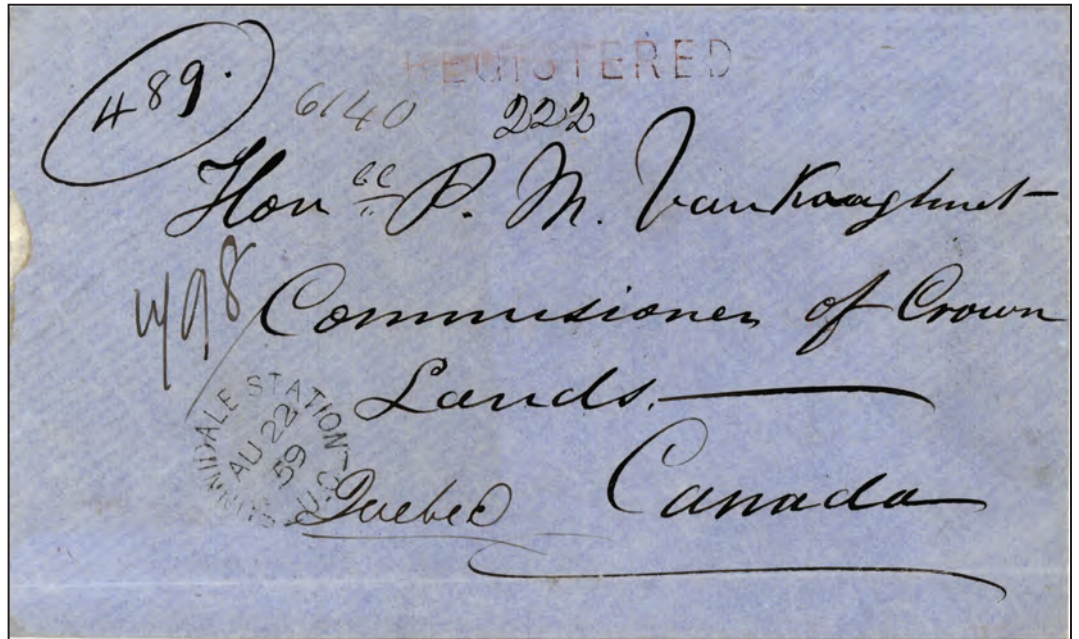 REGISTERED
489.
6140 222
Hon P. M. VanKoughnet
4/98
Commissioner of Crown
Lands.
SUNNIDALE STATION U.C.
AU 22
59
Quebec
Canada